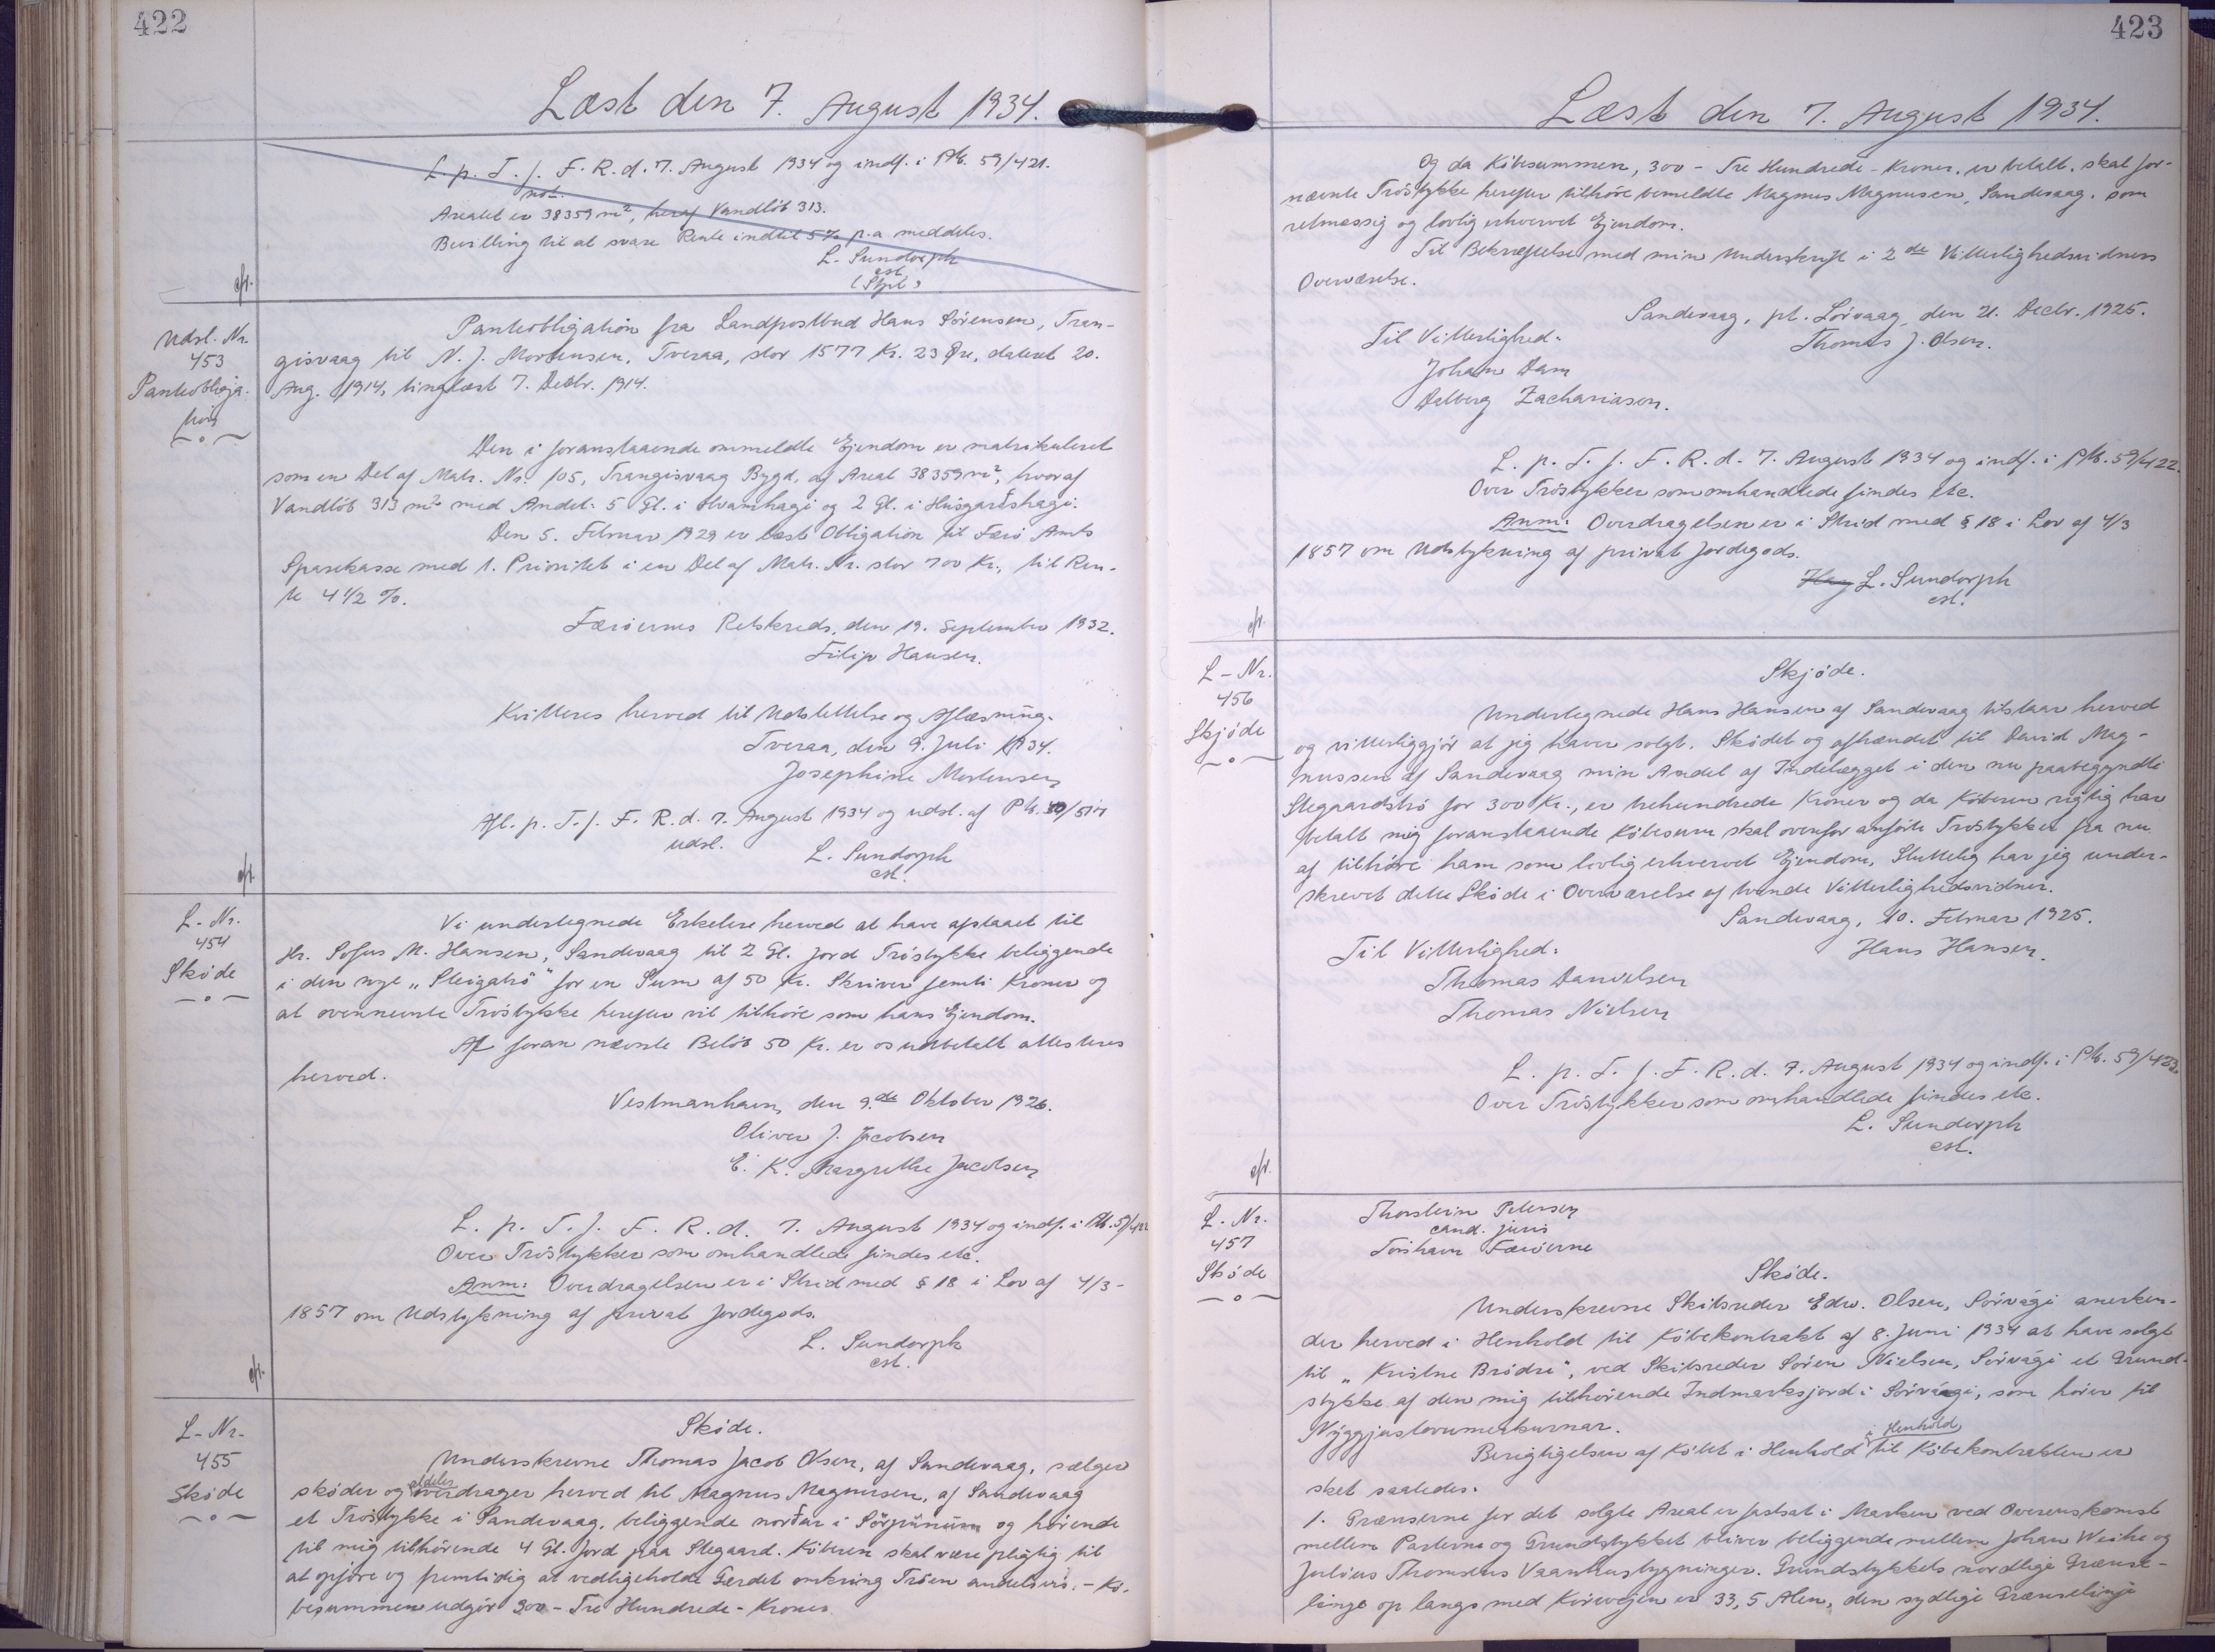 422
Læst den 7. August 1934.
L. p. T. f. F. R. d. 7. August 1934 og indf. i Ptb. 59/421.
not.
Arealet er 38359 m², heraf Vandløb 313.
Bevilling til at svare Rente indtil 5% p.a. meddeles.
L. Sundorph
cst.
(Stpl.)
cfr.
Udsl. Nr.
453
Panteobliga-
tion
Panteobligation fra Landpostbud Hans Sörensen, Tran-
gisvaag til N. J. Mortensen, Tveraa, stor 1577 Kr. 23 Øre, dateret 20.
Aug. 1914, tinglæst 7. Decbr. 1914.
Den i foranstaaende ommeldte Ejendom er matrikuleret
som en Del af Matr. Nr. 105, Trangisvaag Bygd, af Areal 38359 m², hvoraf
Vandløb 313 m² med Andel: 5 Gl. i Hvamhagi og 2 Gl. i Húsgarðshagi.
Den 5. Februar 1929 er læst Obligation til Færø Amts
Sparekasse med 1. Prioritet i en Del af Matr. Nr. stor 700 Kr., til Ren-
te 4 1/2 %.
Færöernes Retskreds, den 19. September 1932.
Filip Hansen.
Kvitteres herved til Udslettelse og Aflæsning.
Tveraa, den 9. Juli 1934.
Josephine Mortensen
Afl. p. T. f. F. R. d. 7. August 1934 og udsl. af Ptb.
udsl.
L. Sundorph
cst.
cfr.
L-Nr.
454
Sköde
Vi undertegnede Erkelere herved at have afstaaet til
Hr. Sofus M. Hansen, Sandevaag til 2 Gl. Jord Tröstykke beliggende
i den nye "Steigatrö" for en Sum af 50 Kr. Skriver femti Kroner og
at ovennevnte Tröstykke herefter vil tilhöre som hans Ejendom.
At foran nævnte Belöb 50 Kr. er os udbetalt attesteres
herved.
Vestmanhavn, den 9.de Oktober 1926.
Oliver J. Jacobsen
E. K. Margrethe Jacobsen
L. p. T. f. F. R. d. 7. August 1934 og indf. i Ptb. 59/422
Over Tröstykker som omhandlede findes etc.
Anm: Overdragelsen er i Strid med § 18 i Lov af 4/3-
1857 om Udstykning af privat Jordegods.
L. Sundorph
cst.
cfr.
L-Nr-
455
Sköde
Sköde.
Underskrevne Thomas Jacob Olsen, af Sandevaag, sælger
aldeles
sköder og overdrager herved til Magnus Magnusen, af Sandevaag
et Tröstykke i Sandevaag, beliggende norðar i og hörende
til mig tilhörende 4 Gl. Jord paa Stegaard. Köberen skal være pligtig til
at opföre og fremtidig at vedligeholde Gærdet omkring Tröen andelsvis. - Kö-
besummen udgör 300 - Tre Hundrede - Kroner.
423
Læst den 7. August 1934.
Og da Köbesummen, 300 - Tre Hundrede - Kroner, er betalt, skal for-
nævnte Tröstykke herefter tilhöre bemeldte Magnus Magnusen, Sandevaag, som
retmæssig og lovlig erhvervet Ejendom.
Til Bekræftelse med min Underskrift i 2de Vitterlighedsvidners
Overværelse.
Sandevaag, pt. Sörvaag, den 21. Decbr. 1925.
Til Vitterlighed:
Thomas J. Olsen.
Johan Dam
Dalberg Zachariasen.
L. p. T. f. F. R. d. 7. August 1934 og indf. i Ptb. 59/422.
Over Tröstykker som omhandlede findes etc.
Anm: Overdragelsen er i Strid med § 18 i Lov af 4/3
1857 om Udstykning af privat Jordegods.
L. Sundorph
cst.
cfr.
L-Nr.
456
Skjöde
Skjöde.
Undertegnede Hans Hansen af Sandevaag tilstaar herved
og vitterliggjör at jeg haver solgt, Sködet og afhændet til David Mag-
nussen af Sandevaag min Andel af Indelægget i den nu paabegyndte
Stegaardströ for 300 Kr., er trehundrede Kroner og da Köberen rigtig har
betalt mig foranstaaende Köbesum skal ovenfor anförte Tröstykker fra nu
af tilhöre ham som lovlig erhvervet Ejendom, Sluttelig har jeg under-
skrevet dette Sköde i Overværelse af tvende Vitterlighedsvidner.
Sandevaag, 10. Februar 1925.
Til Vitterlighed:
Hans Hansen.
Thomas Danielsen
Thomas Nielsen
L. p. T. f. F. R. d. 7. August 1934 og indf. i Ptb. 59/423.
Over Tröstykker som omhandlede findes etc.
L. Sundorph
cst.
cfr.
L-Nr.
457
Sköde
Thorstein Petersen
cand. juris
Torshavn Færöerne
Sköde.
Underskrevne Skibsreder Edw. Olsen, Sörvági anerken-
der herved i Henhold til Köbekontrakt af 8. Juni 1934 at have solgt
til "Kristne Brödre", ved Skibsreder Sören Nielsen, Sörvági et Grund-
stykke af den mig tilhörende Indmarksjord i Sörvági, som hörer til
Nýggjustovumerkurnar.
i Henhold
Berigtigelsen af Köbet i Henhold til Köbekontrakten er
sket saaledes:
1. Grænserne for det solgte Areal er fastsat i Marken ved Overenskomst
mellem Parterne og Grundstykket bliver beliggende mellem Johan Weihe og
Julius Thomsens Vaanhusbygninger. Grundstykkets nordlige Grænse-
linge op langs med Körvejen er 33,5 Alen, den sydlige Grænselinje